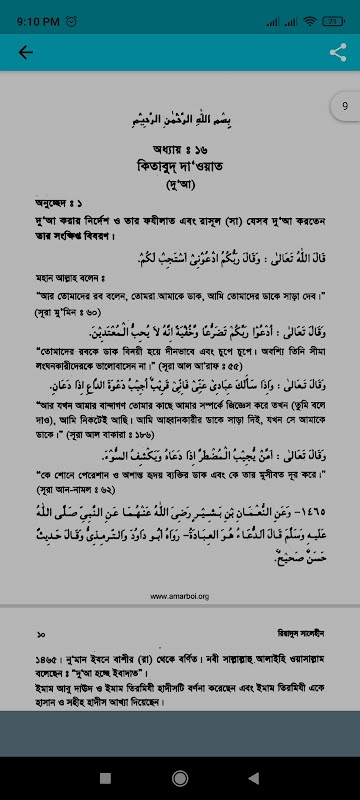 9:10 PM
71
9
بِسْمِ اللّٰهِ الرَّحْمٰنِ الرَّحِيْمِ
অধ্যায় ঃ ১৬
কিতাবুদ্ দা‘ওয়াত
(দু‘আ)
অনুচ্ছেদ ঃ ১
দু‘আ করার নির্দেশ ও তার ফযীলাত এবং রাসূল (সা) যেসব দু‘আ করতেন
তার সংক্ষিপ্ত বিবরণ।
قَالَ اللّٰهُ تَعَالٰى : وَقَالَ رَبُّكُمُ ادْعُوْنِىْ اَسْتَجِبْ لَكُمْ.
মহান আল্লাহ বলেন ঃ
“আর তোমাদের রব বলেন, তোমরা আমাকে ডাক, আমি তোমাদের ডাকে সাড়া দেব।”
(সূরা মু’মিন ঃ ৬০)
وَقَالَ تَعَالٰى : اُدْعُوْا رَبَّكُمْ تَضَرُّعًا وَّخُفْيَةً اِنَّهُ لاَ يُحِبُّ الْمُعْتَدِيْنَ.
“তোমাদের রবকে ডাক বিনয়ী হয়ে দীনভাবে এবং চুপে চুপে। অবশ্যি তিনি সীমা
লংঘনকারীদেরকে ভালোবাসেন না।” (সূরা আল আ‘রাফ ঃ ৫৫)
وَقَالَ تَعَالٰى : وَاِذَا سَاَلَكَ عِبَادِىْ عَنِّىْ فَاِنِّىْ قَرِيْبٌ اُجِيْبُ دَعْوَةَ الدَّاعِ اِذَا دَعَانِ.
“আর যখন আমার বান্দাগণ তোমার কাছে আমার সম্পর্কে জিজ্ঞেস করে তখন (তুমি বলে
দাও), আমি নিকটেই আছি। আমি আহ্বানকারীর ডাকে সাড়া দিই, যখন সে আমাকে
ডাকে।” (সূরা আল বাকারা ঃ ১৮৬)
وَقَالَ تَعَالٰى : اَمَّنْ يُّجِيْبُ الْمُضْطَرَّ اِذَا دَعَاهُ وَيَكْشِفُ السُّوْءَ.
“কে শোনে পেরেশান ও অশান্ত হৃদয় ব্যক্তির ডাক এবং কে তার মুসীবত দূর করে।”
(সূরা আন-নামল ঃ ৬২)
١٤٦٥- وَعَنِ النُّعْمَانِ بْنِ بَشِيْرٍ رَضِىَ اللّٰهُ عَنْهُمَا عَنِ النَّبِىِّ صَلَّى اللّٰهُ
عَلَيْهِ وَسَلَّمَ قَالَ اَلدُّعَاءُ هُوَ الْعِبَادَةُ- رَوَاهُ اَبُوْ دَاوُدَ وَالتِّرْمِذِىُّ وَقَالَ حَدِيْثٌ
حَسَنٌ صَحِيْحٌ.
www.amarboi.org
১০ রিয়াদুস সালেহীন
১৪৬৫। নু‘মান ইবনে বাশীর (রা) থেকে বর্ণিত। নবী সাল্লাল্লাহু আলাইহি ওয়াসাল্লাম
বলেছেন ঃ “দু‘আ হচ্ছে ইবাদাত”।
ইমাম আবু দাউদ ও ইমাম তিরমিযী হাদীসটি বর্ণনা করেছেন এবং ইমাম তিরমিযী একে
হাসান ও সহীহ হাদীস আখ্যা দিয়েছেন।